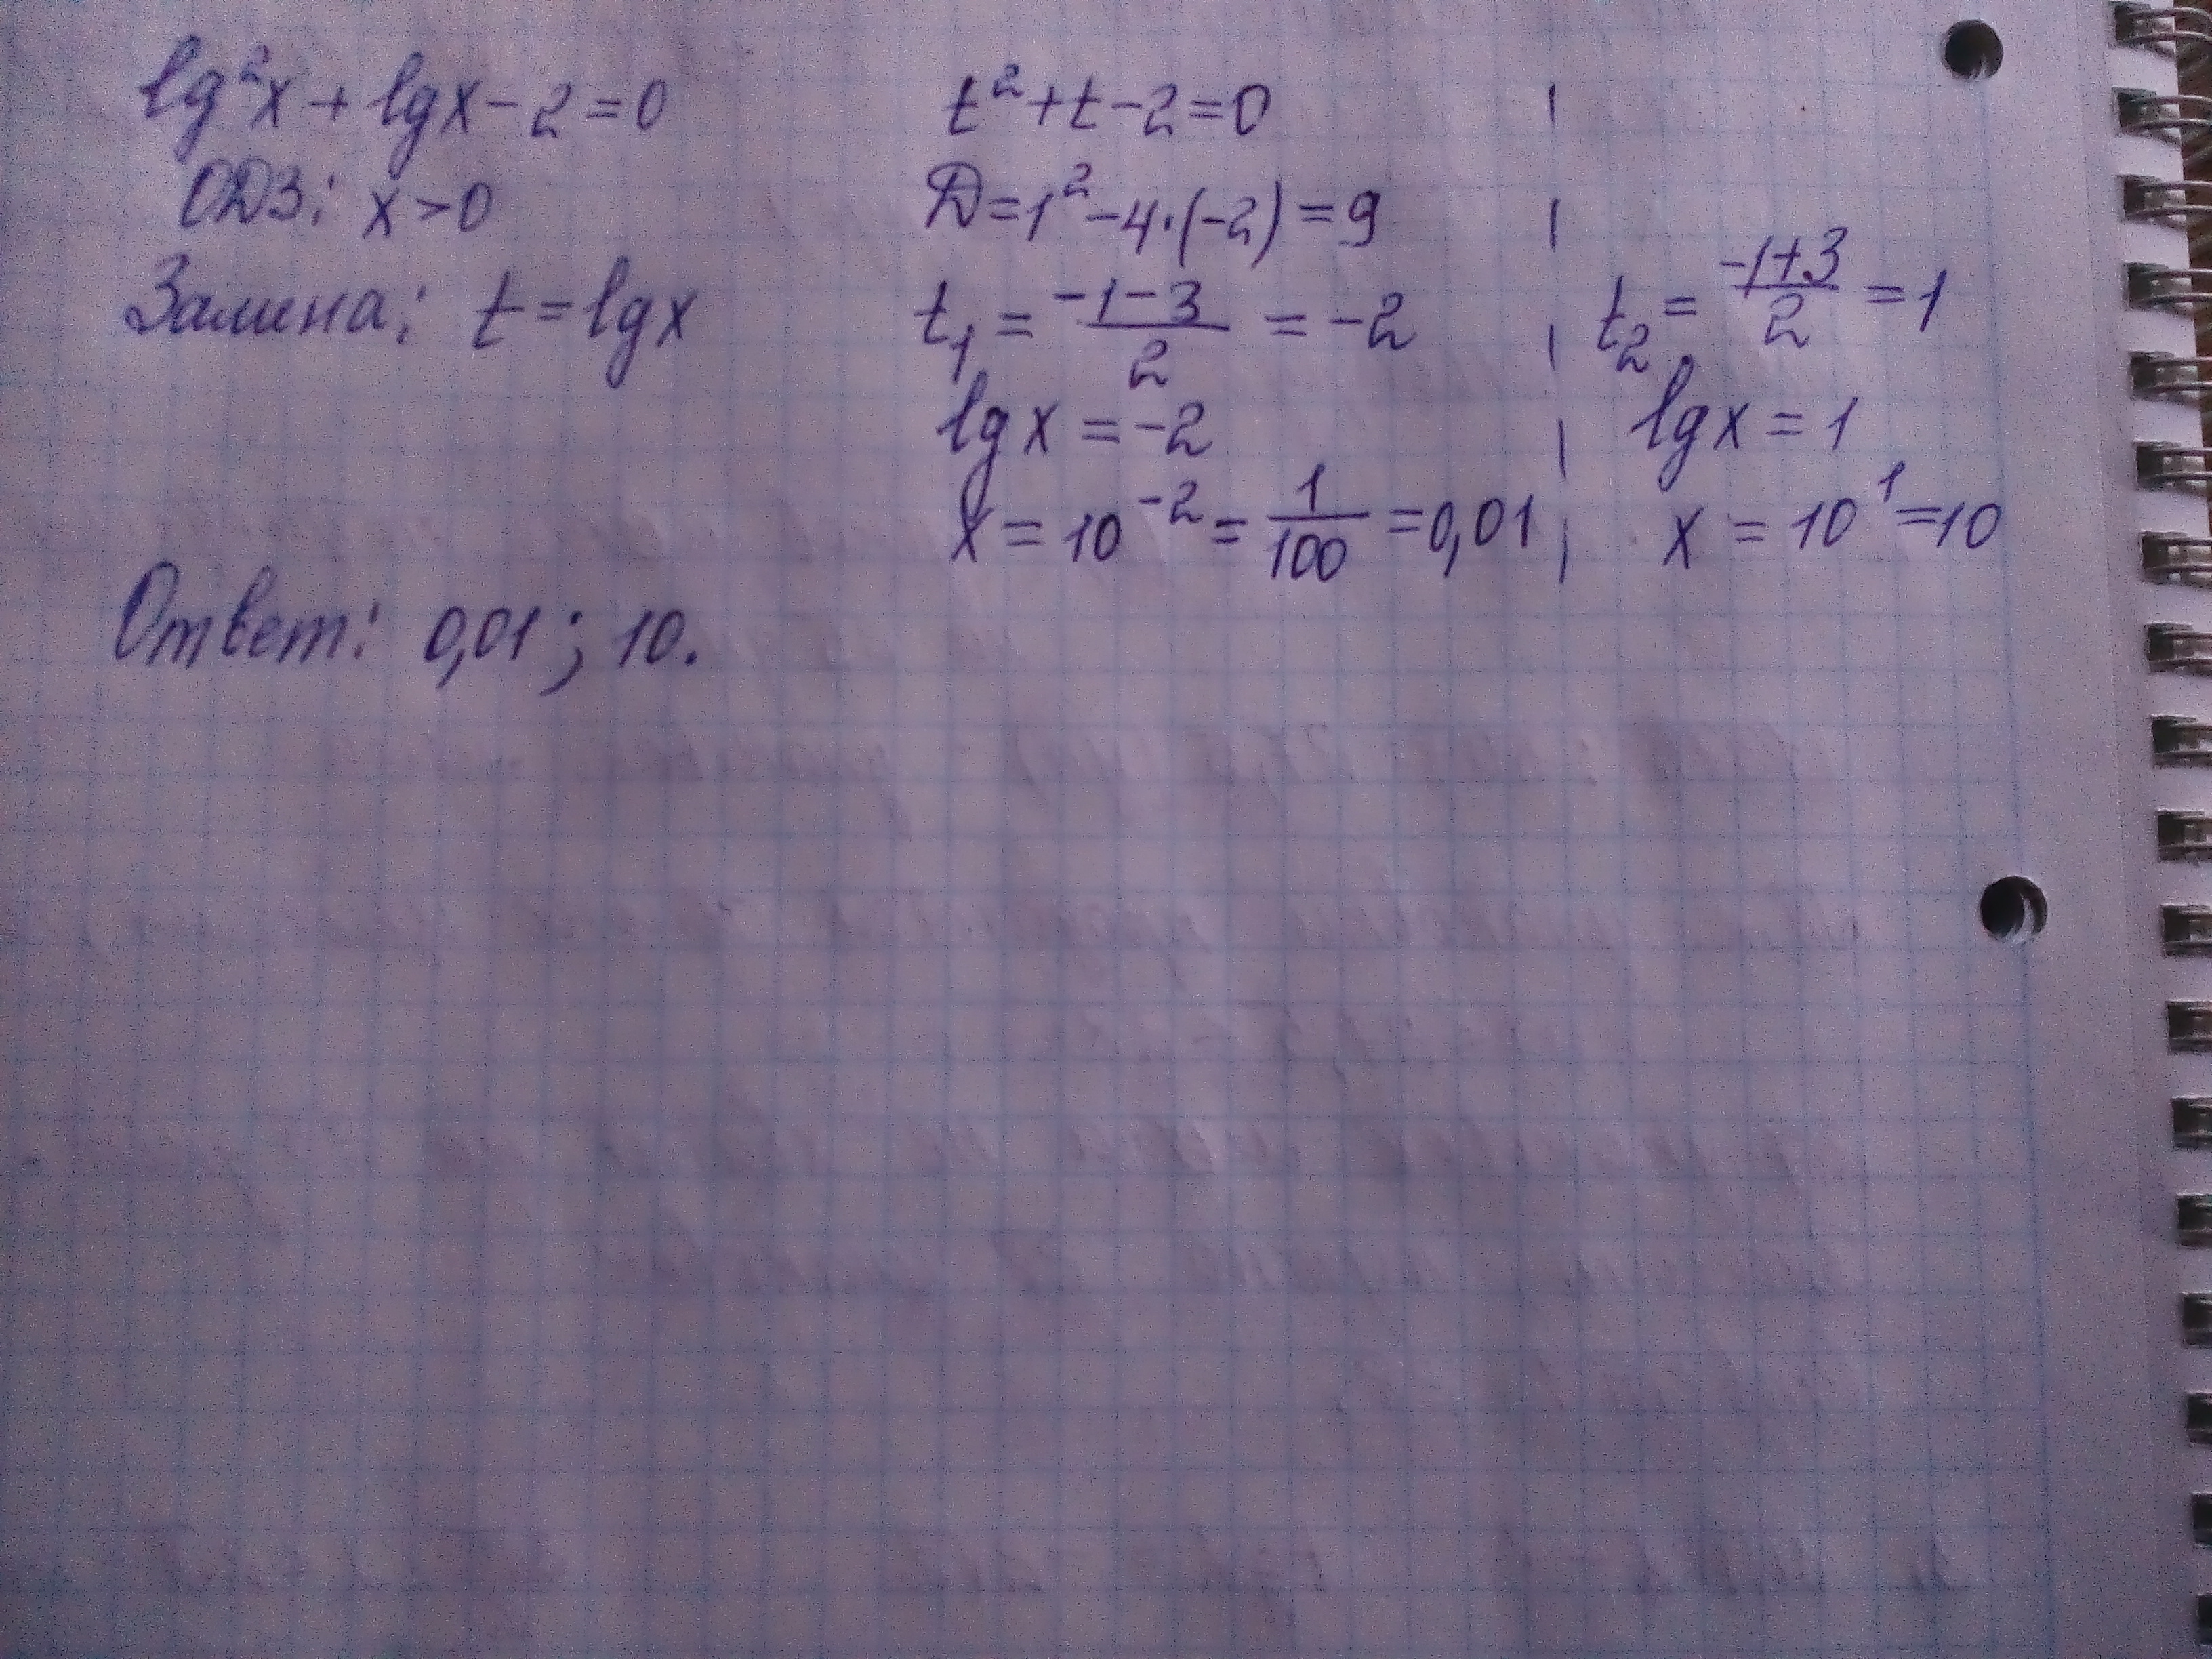 lg²x + lgx - 2 = 0
ОДЗ: x > 0
Замена: t = lgx
t² + t - 2 = 0
D = 1² - 4·(-2) = 9
t₁ = (-1-3)/2 = -2
lgx = -2
x = 10⁻² = 1/100 = 0,01
t₂ = (-1+3)/2 = 1
lgx = 1
x = 10¹ = 10
Ответ: 0,01; 10.